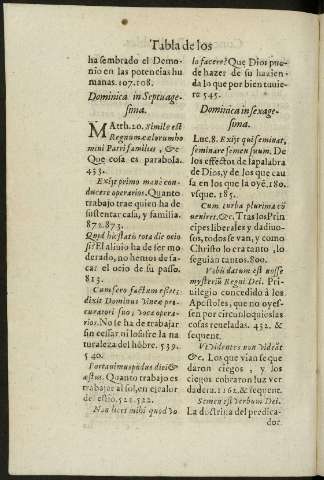 Tabla de los
ha sembrado el Demo-
nio en las potencias hu
manas. 107. 108.
Dominica in Septuage-
sima.
MAtth. 20. Simile est
Regnum cælorum ho
mini Patri familias, &c
Que cosa es parabola.
453.
Exijt primo mane con-
ducere operarios. Quanto
trabajo trae quien ha de
sustentar casa, y familia.
872. 873.
Quid hic statis tota die ocio
si? El aliuio ha de ser mo
derado, no hemos de sa-
car el ocio de su passo.
813.
Cum sero factum esset;
dixit Dominus vineæ pro-
curatori suo; voca opera-
rios. No se ha de trabajar
sin cessar ni lo sufre la
naturaleza del hõbre. 539.
540.
Portauimus põdus diei &
æstus. Quanto trabajo es
trabajar al sol, en el calor
del estio. 521. 522.
Non licet mihi quod vo
lo facere? Que Dios pue-
de hazer de su hazien-
da lo que por bien tuuie
re 545.
Dominica in sexage-
sima.
Luc. 8. Exijt qui seminat,
seminare semen suum. De
los effectos de la palabra
de Dios, y de los que cau
sa en los que la oyẽ. 180.
vsque. 185.
Cum turba plurima cõ
ueniret. &c. Tras los Prin
cipes liberales y dadiuo-
sos, todos se van, y como
Christo lo era tanto, lo
seguian tantos. 800.
Vobis datum est nosse
mysteriũ Regni Dei. Pri-
uilegio concedido à los
Apostoles, que no oyes-
sen por circunloquios las
cosas reueladas. 432. &
sequent.
Vt videntes non videãt
&c. Los que vian se que
daron ciegos, y los
ciegos cobraron luz ver
dadera. 1162. & sequent.
Semen est verbum Dei.
La doctrina del predica-
dor